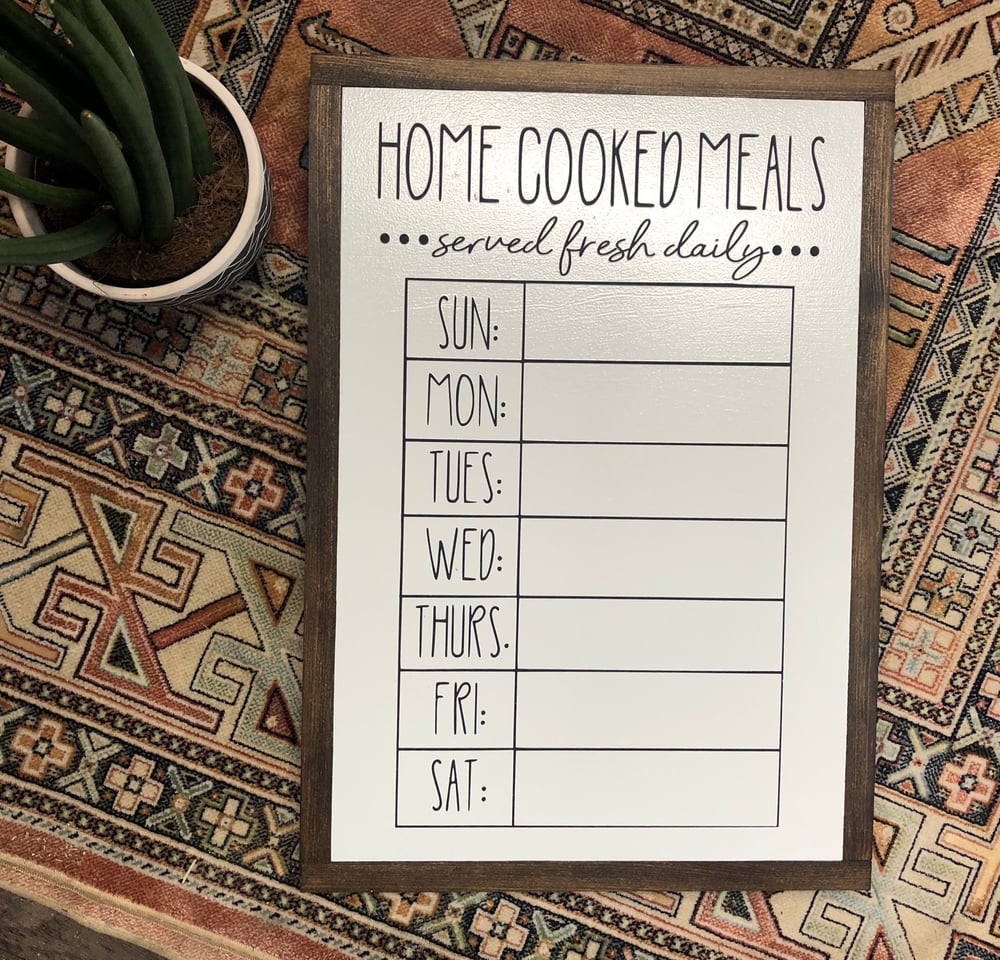 HOME COOKED MEALS
•••served fresh daily•••
SUN:
MON:
TUES:
WED:
THURS.
FRI:
SAT: